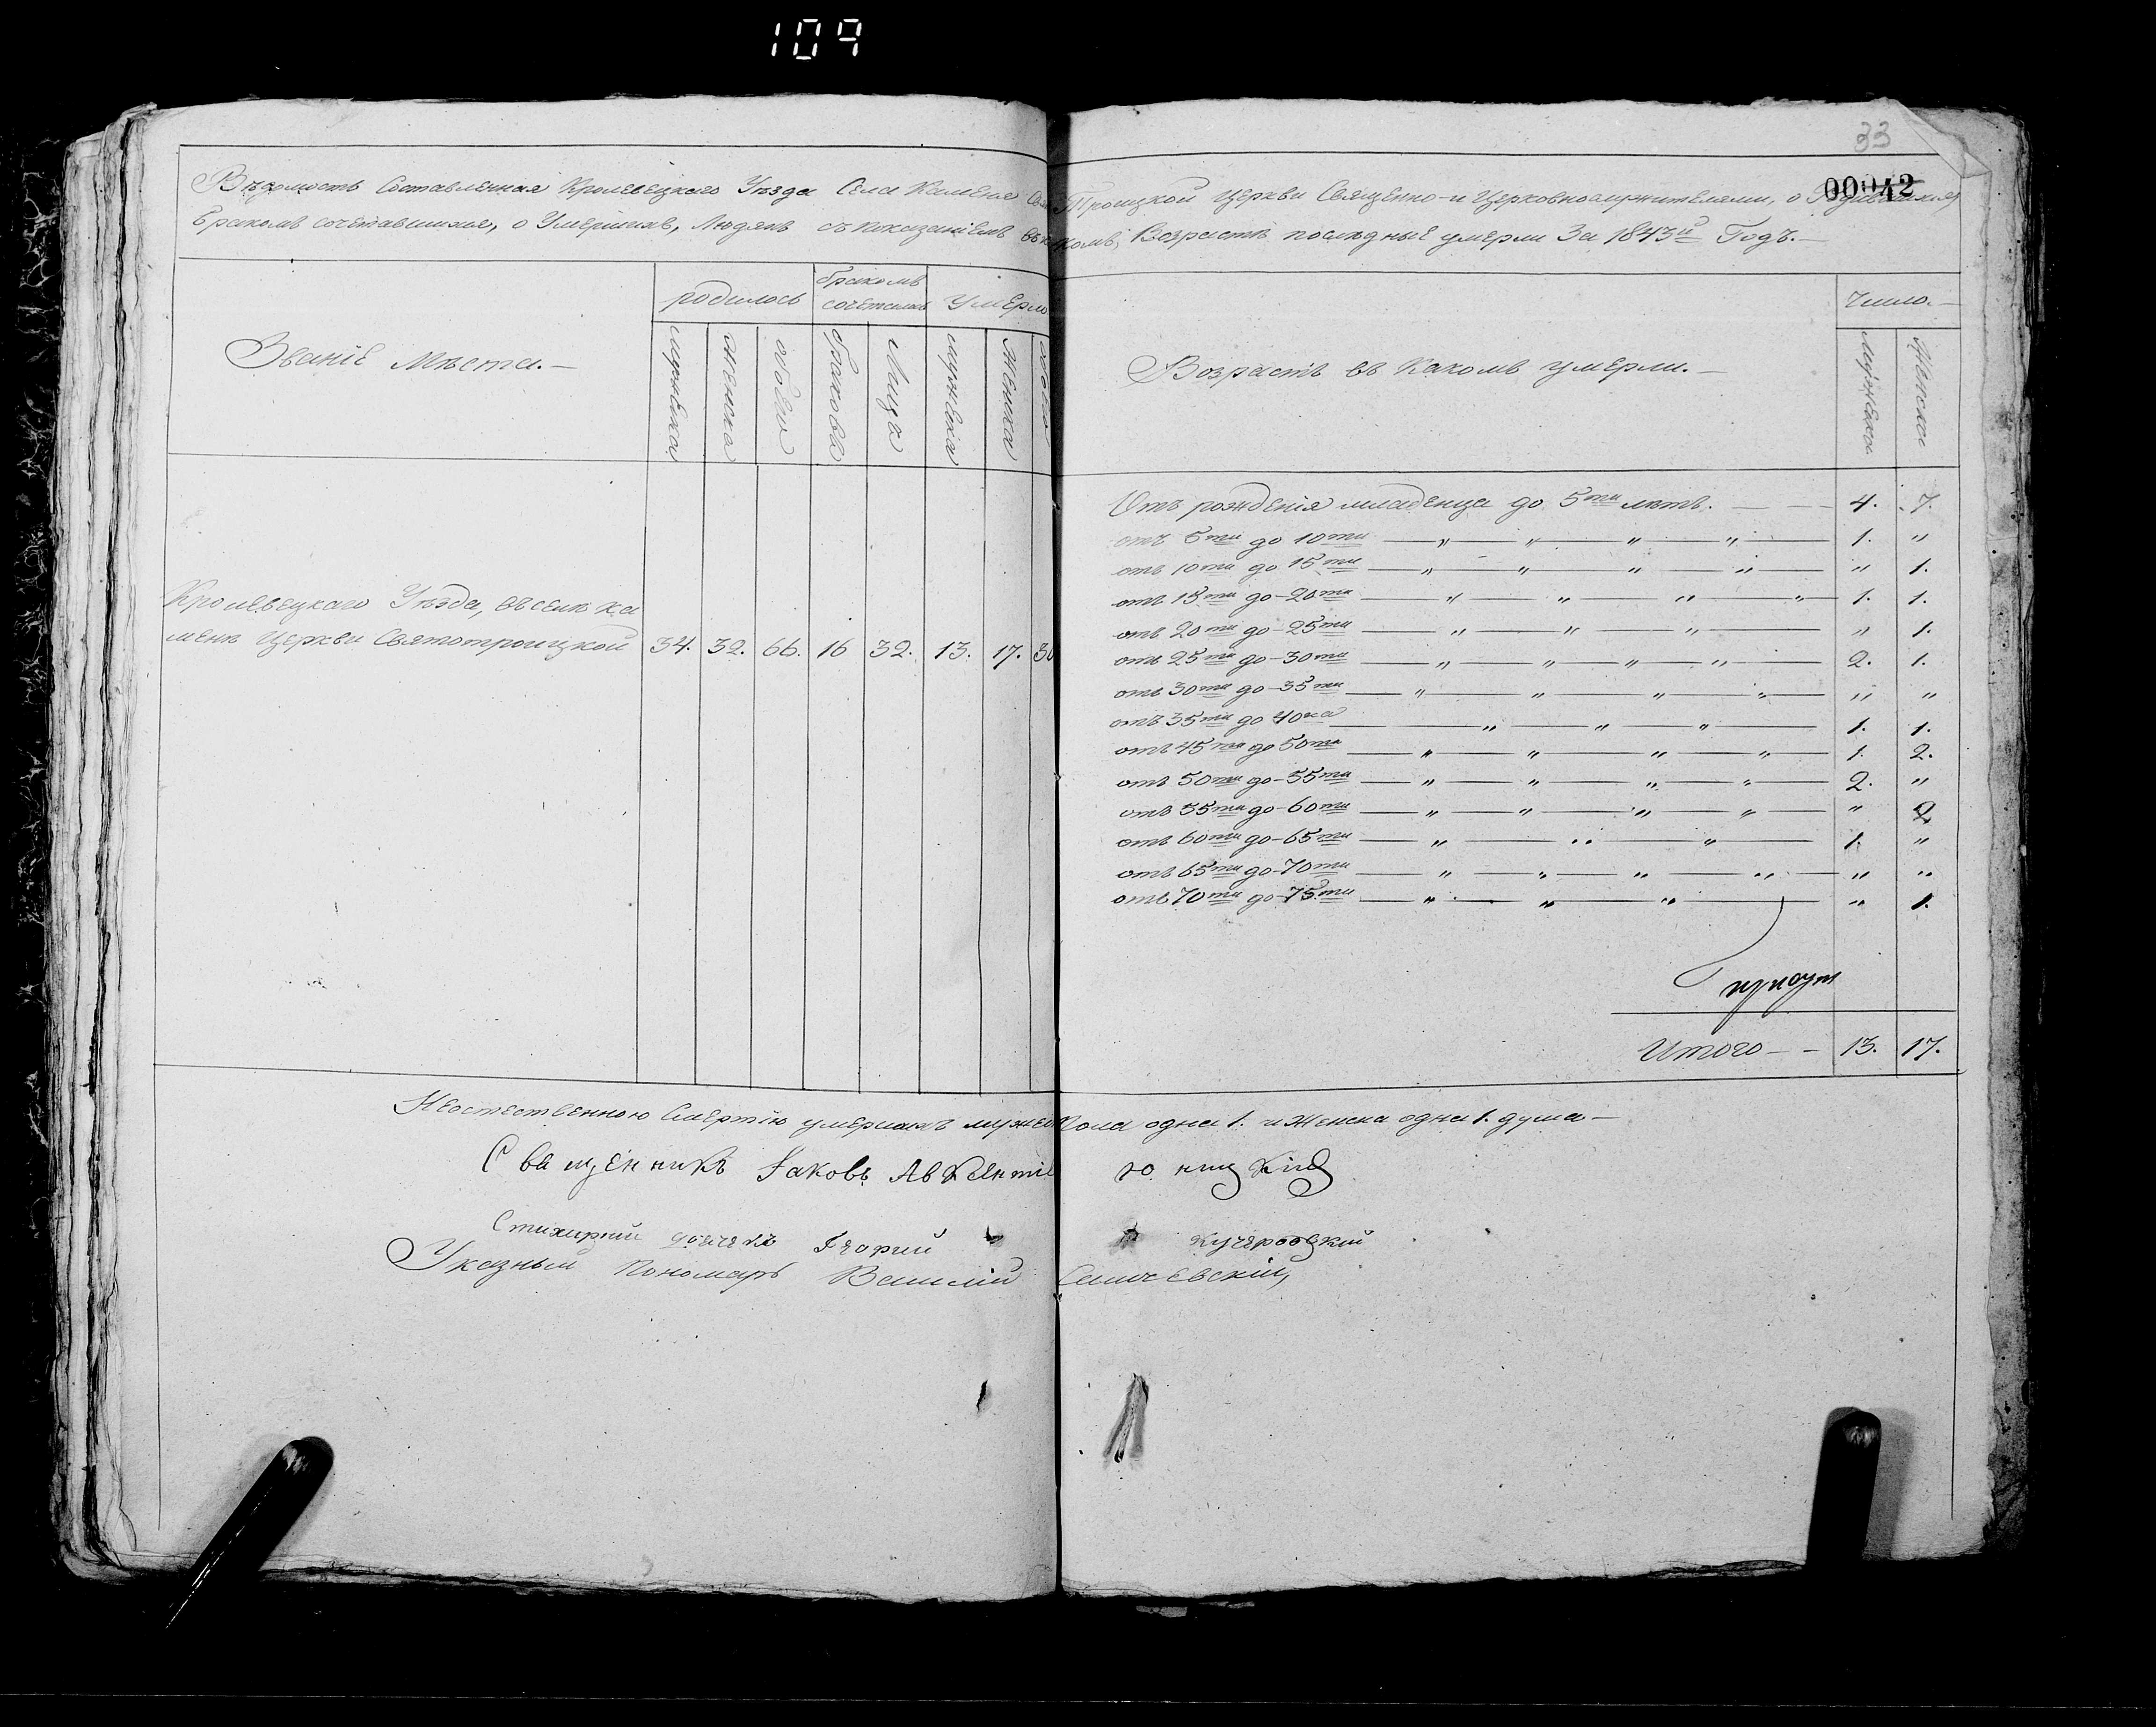 109
33
00042
Вѣдомость Составленная Кролевецкаго Уѣзда Села Каменя Свя Троицкой Церкви Священно-и Церковнослужителями, о Родившихся
Бракомъ сочетавшихся, о Умершихъ, Людяхъ съ показаніемъ въ комъ Возрастѣ послѣдные умерли За 1843й Годъ.—
Званіе Мѣста.—
родилось
бракомъ сочетались
Умерло
Возрастъ въ Какомъ умерли.—
Число.—
мужеска
женска
обоего
браковъ
Лицъ
мужеска
женска
обоего
мужеска
женска
Отъ рожденія младенца до 5ти лѣтъ. — — — 4. 7.
отъ 5ти до 10ти — „ — „ — „ — „ — 1. „
отъ 10ти до 15ти — „ — „ — „ — „ — „ 1.
отъ 15ти до-20ти — „ — „ — „ — „ — 1. 1.
отъ 20ти до-25ти — „ — „ — „ — „ 1.
отъ 25ти до-30ти — „ — „ — „ — „ — 2. 1.
отъ 30ти до-35ти — „ — „ — „ — „ — „ „
отъ 35ти до 40ка — „ — „ — „ — 1. 1.
отъ 45ти до 50ти — „ — „ — „ — „ — 1. 2.
отъ 50ти до-55ти — „ — „ — „ — „ — 2. „
отъ 35ти до-60ти — „ — „ — „ — „ — „ 2
отъ 60ти до-65ти — „ — „ — „ — 1. „
отъ 65ти до-70ти — „ — „ — „ — „ — „ „
отъ 70ти до-75ти — „ — „ — „ — „ 1.
Кролевецкаго Уѣзда, въ селѣ Ка
менѣ Церкви Святотроицкой 34. 32. 66. 16 32. 13. 17. 30
Итого — — 13. 17.
Неостественною Смертію умершихъ мужес пола одна 1. и Женска одна 1. душа—
Священникъ Іаковъ
Стихирный дьячекъ Кучеровскій
Указный Пономарь Василій